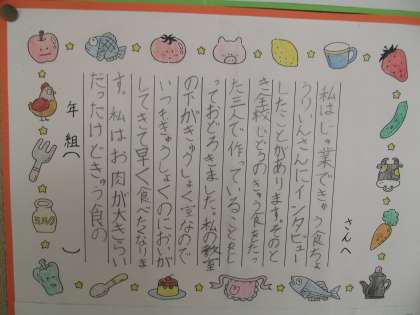 さんへ
私はじゅ業できゅう食ちょ
うりいんさんにインタビュー
したことがあります。そのと
き全校じどうのきゅう食をたっ
た三人で作っていることをし
っておどろきました。私の教室
の下がきゅうしょく室なので
いつもきゅうしょくのにおいが
してきて早く食べたくなりま
す。私はお肉が大きらい
だったけどきゅう食の
年 組( )
ミルク